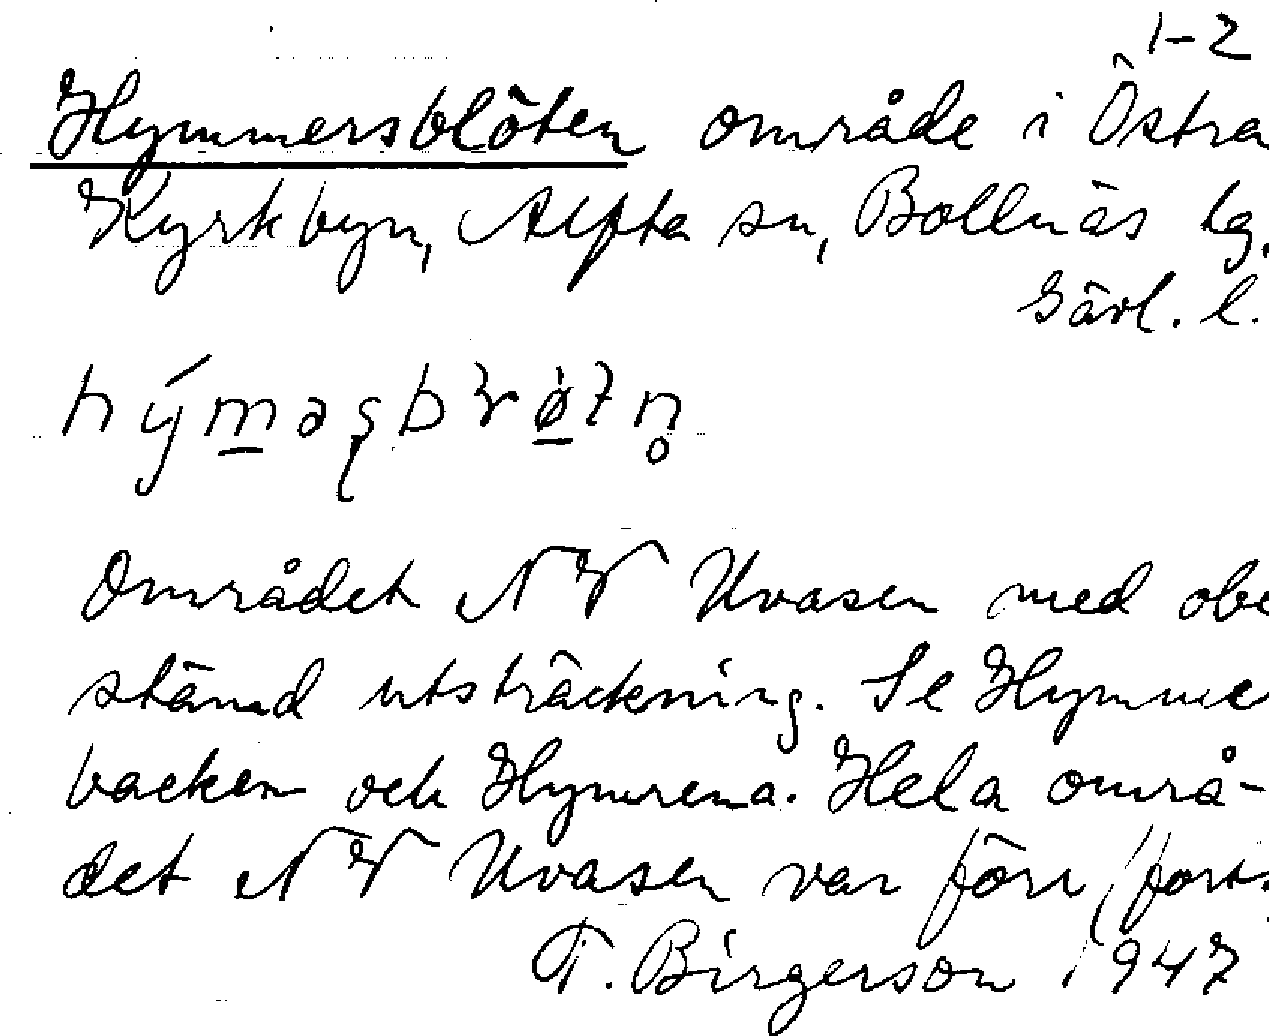 1-2
Hymmersblöten område i Östra
Kyrkbyn, Alfta sn, Bollnäs tg.
Gävl. l.
Området NV Uvasen med obe
stämd utsträckning. Se Hymme
backen och Hymrena. Hela områ-
det NV Uvasen var förr (forts.
T. Birgerson 1947